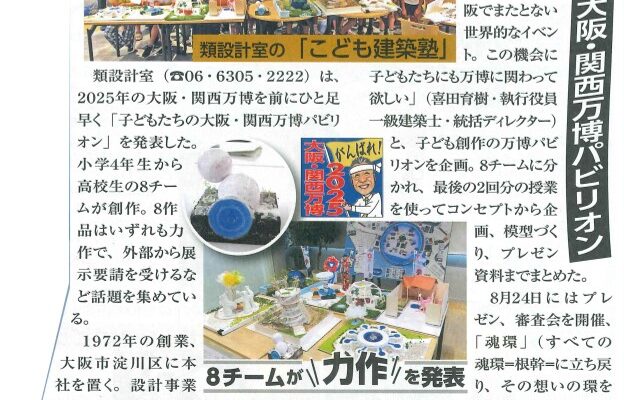 大阪・関西万博パビリオン
類設計室の「こども建築塾」
類設計室（☎06・6305・2222）は、
2025年の大阪・関西万博を前にひと足
早く「子どもたちの大阪・関西万博パビリ
オン」を発表した。
小学4年生から
高校生の8チー
ムが創作。8作
品はいずれも力
作で、外部から展
示要請を受けるな
ど話題を集めてい
る。
1972年の創業、
大阪市淀川区に本
社を置く。設計事業
がんばれ！
大阪・関西万博
2025
8チームが力作を発表
阪でまたとない
世界的なイベン
ト。この機会に
子どもたちにも万博に関わって
欲しい」（喜田育樹・執行役員
一級建築士・統括ディレクター）
と、子ども創作の万博パビ
リオンを企画。8チームに分
かれ、最後の2回分の授業
を使ってコンセプトから企
画、模型づく
り、プレゼン
資料までまとめた。
8月24日にはプレ
ゼン、審査会を開催、
「魂環」（すべての
魂環=根幹=に立ち戻
り、その想いの環を